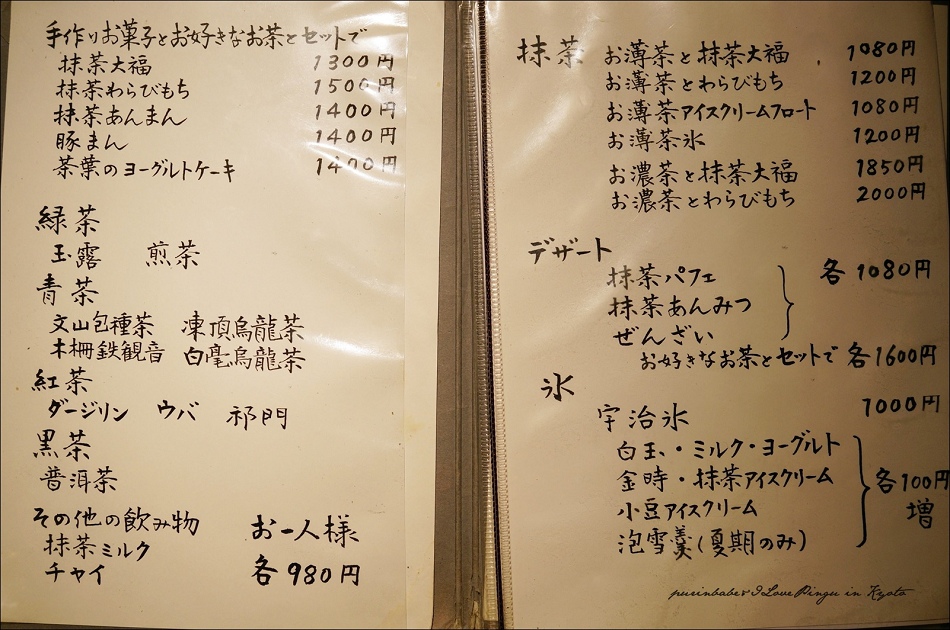 手作りお菓子とお好きなお茶とセットで
抹茶大福 1300円
抹茶わらびもち 1500円
抹茶あんまん 1400円
豚まん 1400円
茶葉のヨーグルトケーキ 1400円
緑茶
玉露 煎茶
青茶
文山包種茶 凍頂烏龍茶
木柵鉄観音 白毫烏龍茶
紅茶
ダージリン ウバ 祁門
黒茶
普洱茶
その他の飲み物
抹茶ミルク
チャイ
お一人様
各980円
抹茶 お薄茶と抹茶大福 1080円
お薄茶とわらびもち 1200円
お薄茶アイスクリームフロート 1080円
お薄茶氷 1200円
お濃茶と抹茶大福 1850円
お濃茶とわらびもち 2000円
デザート
抹茶パフェ 各1080円
抹茶あんみつ
ぜんざい
お好きなお茶とセットで 各1600円
氷
宇治氷 1000円
白玉・ミルク・ヨーグルト
金時・抹茶アイスクリーム 各100円
小豆アイスクリーム 増
泡雪羹(夏期のみ)
purinbabe's I Love Pingu in Kyoto